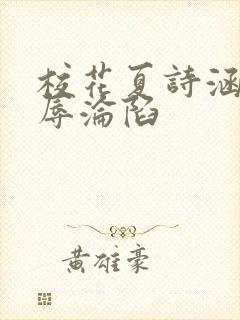 校花夏詩涵
辱淪陷
黄雄豪